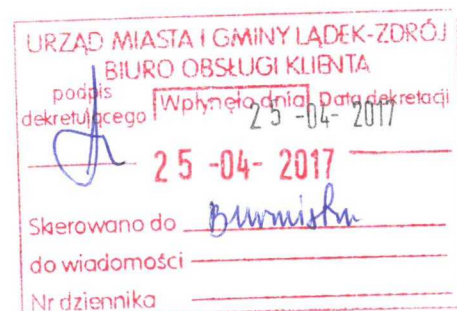 URZĄD MIASTA I GMINY LĄDEK-ZDRÓJ
BIURO OBSŁUGI KLIENTA
podpis dekretującego
Wpłynęło dnia
Data dekretacji
25 -04- 2017
25 -04- 2017
Skierowano do Burmistrz
do wiadomości
Nr dziennika